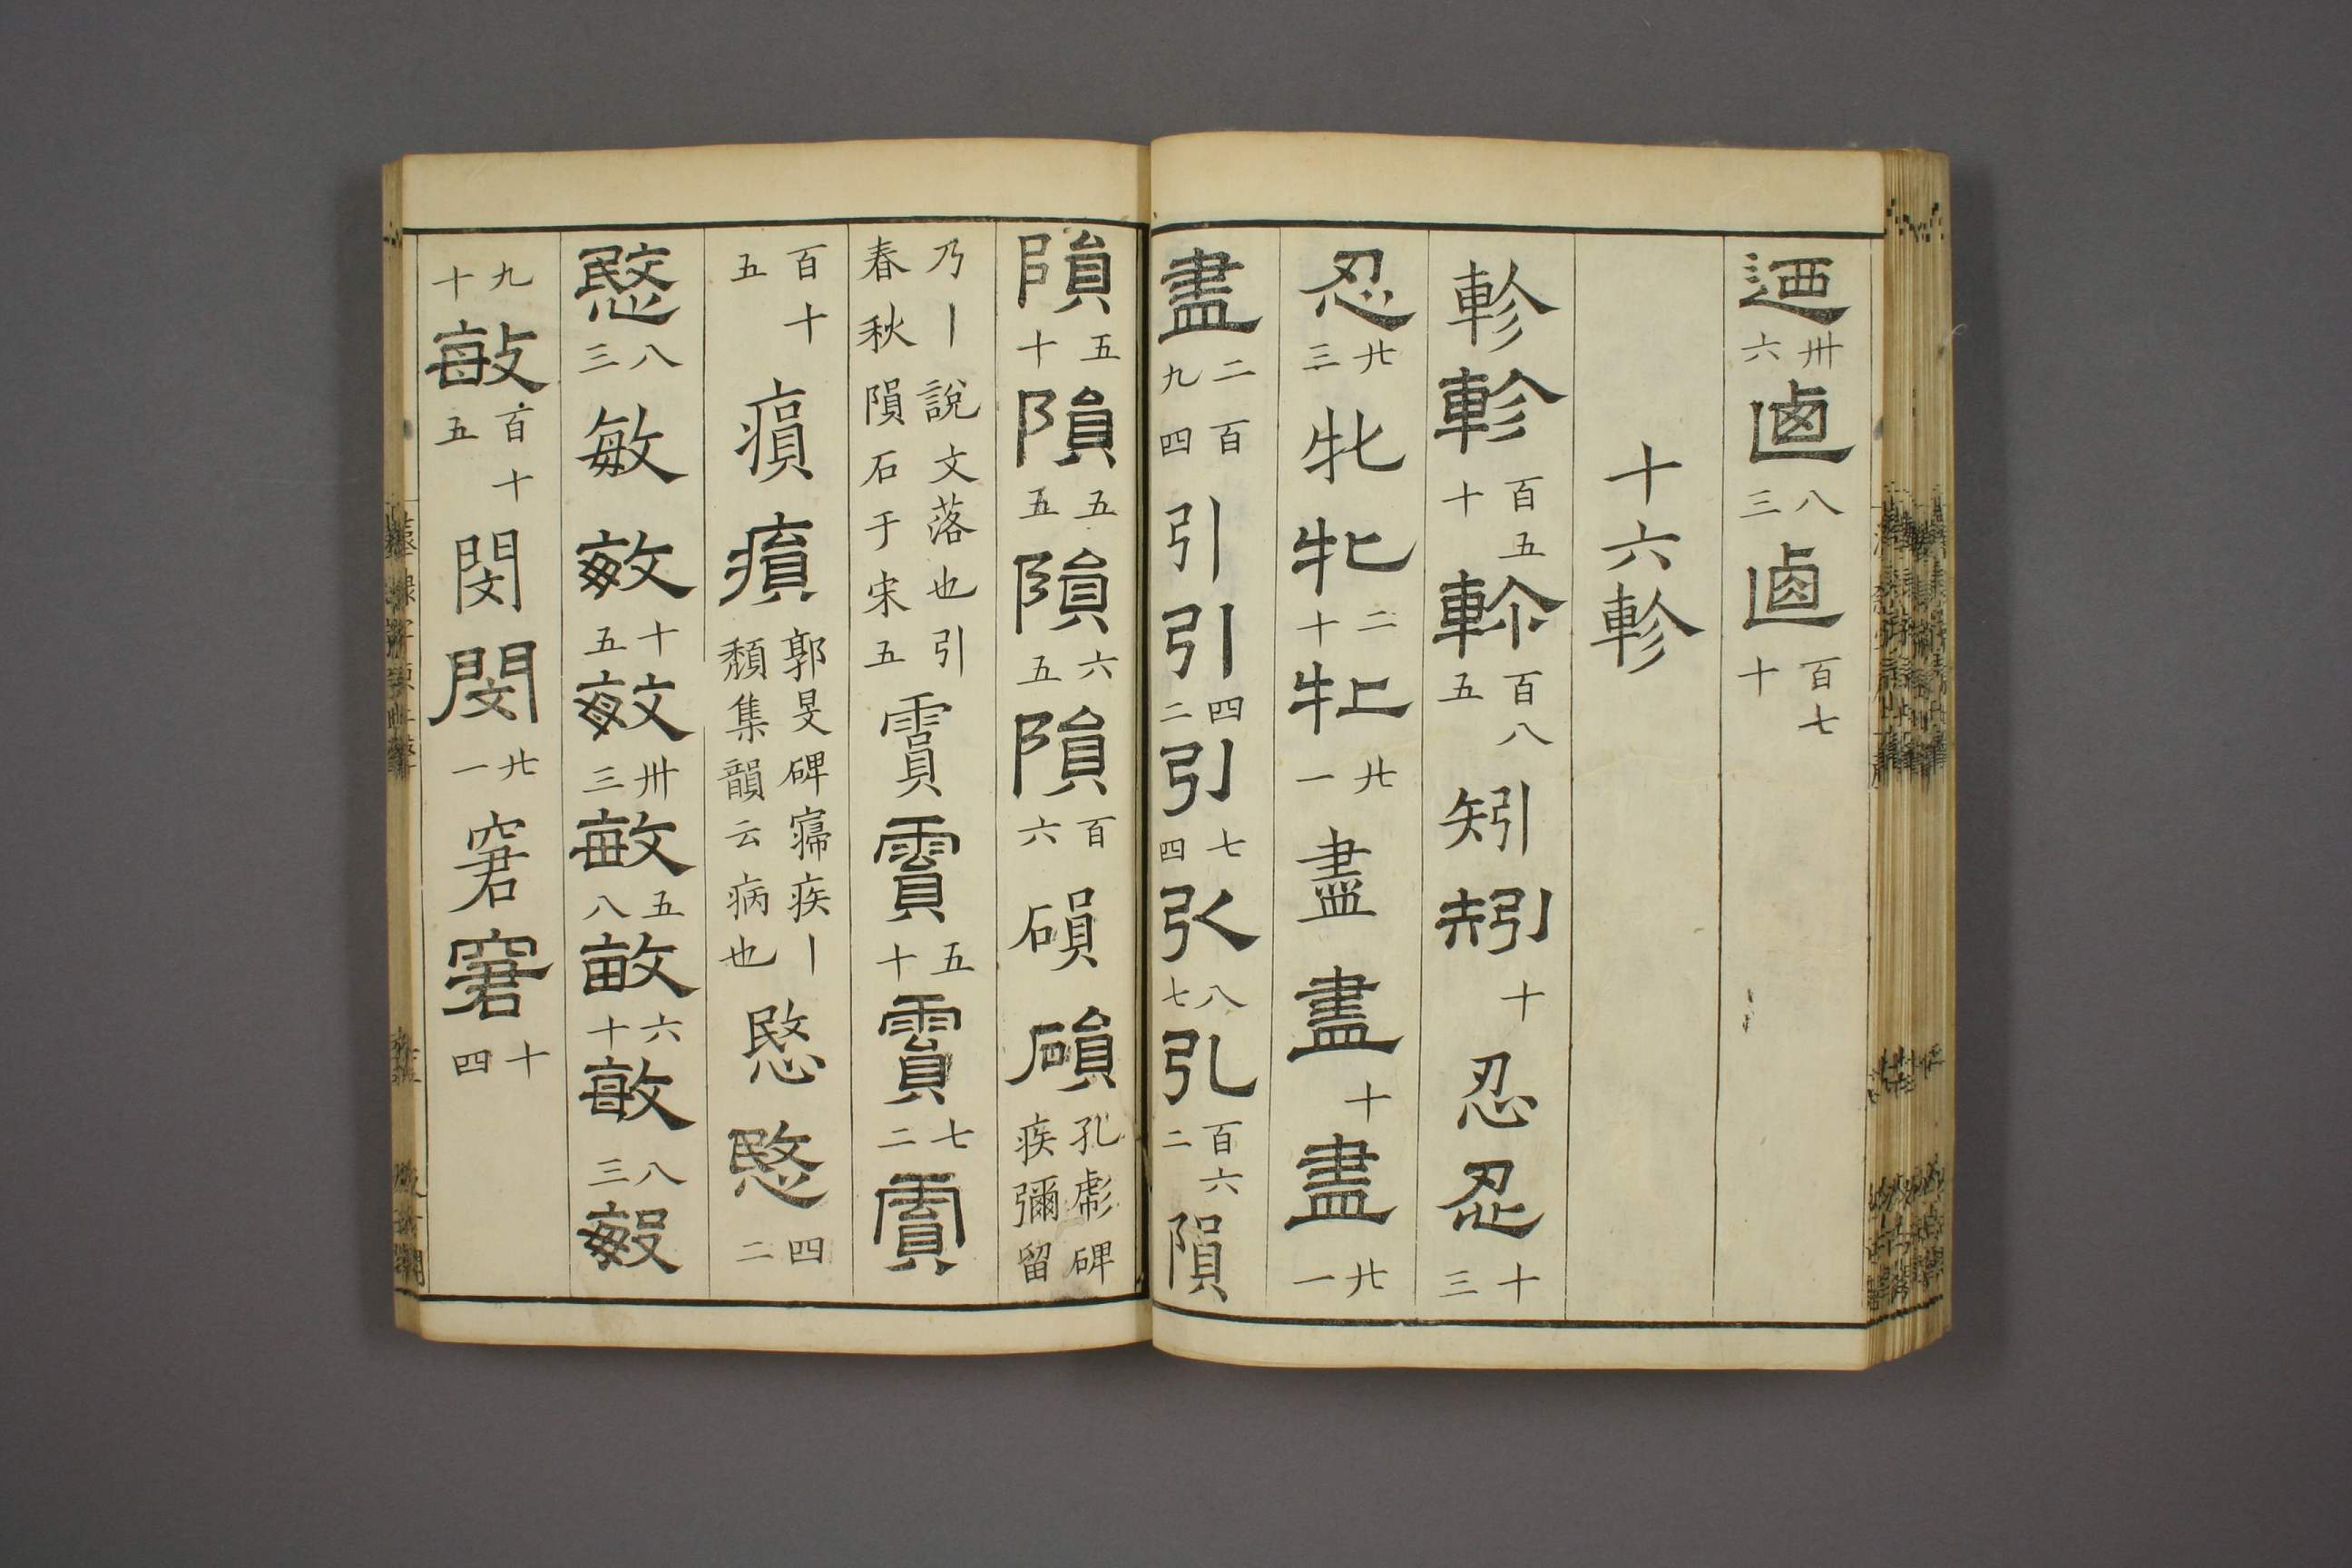 迺卅六𠧟八三𠧟百七十
十六軫
軫軫百五十五軫百八五矧矧十忍忍十三
忍廿三牝牝二十牝廿一盡盡十盡廿一
盡二九百四引引四二引七四引八七引百六二隕
隕五十隕五五隕六五隕百六磒磒孔彪碑疾彌留
乃丨說文落也引春秋隕石于宋五霣霣五十霣七二霣
百十五㾓㾓郭旻碑寢疾丨頹集韻云病也愍愍四二
愍八三敏敏十五敏卅三敏五八敏六十敏八三敏
九十敏百十五閔閔廿一窘窘十四